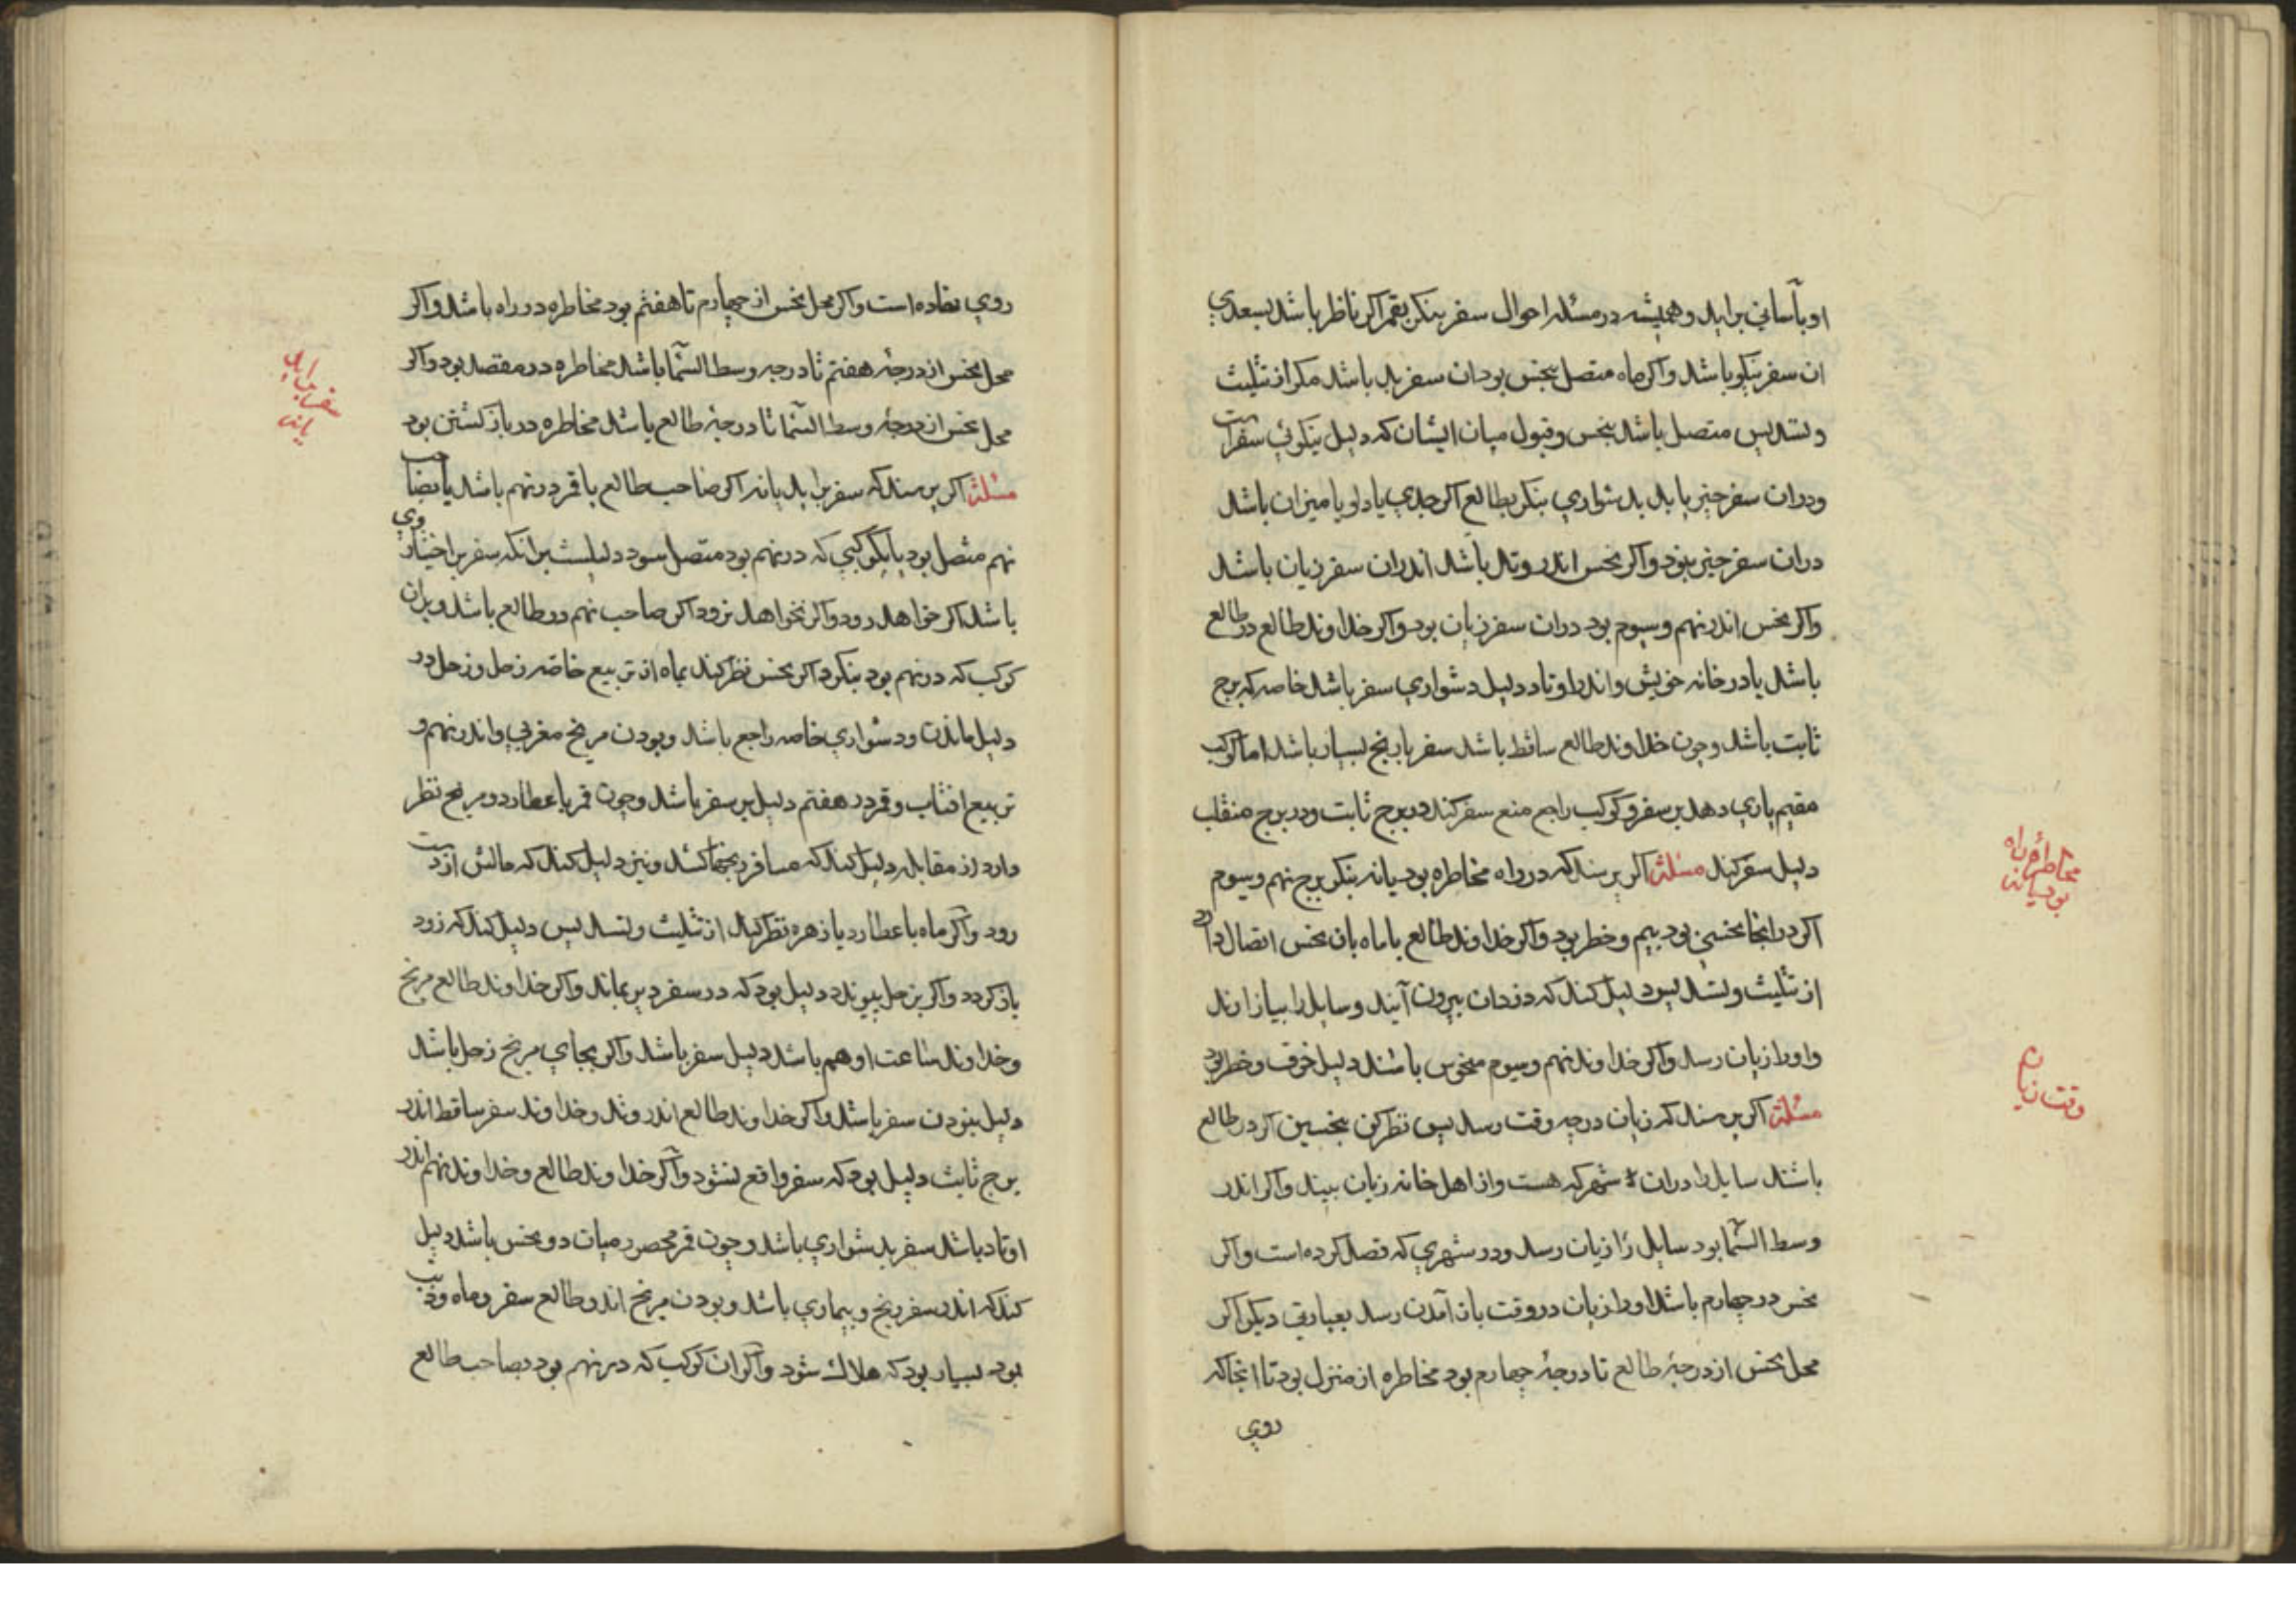 او بآسانی برآید و همیشه در مسئله احوال سفر بنکر بقمر اکر ناظر باشد بسعدی
ان سفر نیکو باشد واکر ماه متصل بنحس بود ان سفر بد باشد مکر از تثلیث
وتسدیس متصل باشد بنحس وقبول میان ایشان که دلیل نیکوئی سفر است
ودران سفر چیز یابد بدشواری بنکر بطالع اکر جدی یا دلو یا میزان باشد
دران سفر چیز نبود واکر نحس اندر وتد باشد اندران سفر زیان باشد
واکر نحس اندر نهم وسیوم بود دران سفر زیان بود واکر خداوند طالع در طالع
باشد یا در خانه خویش واندر اوتاد دلیل دشواری سفر باشد خاصه که برج
ثابت باشد وچون خداوند طالع ساقط باشد سفر با رنج بسیار باشد اما کوکب
مقیم یاری دهد بر سفر وکوکب راجع منع سفر کند در برج ثابت ودر برج منقلب
دلیل سفر کند مسئلة اکر پرسند که در راه مخاطره بود یا نه بنکر برج نهم وسیوم
مخاطره در راه
بود یا نه
اکر در انجا نحسی بود بیم وخطر بود واکر خداوند طالع یا ماه بان نحس اتصال دارد
از تثلیث وتسدیس دلیل کند که دزدان بیرون آیند وسایل را بیازارند
واورا زیان رسد واکر خداوند نهم وسیوم منحوس باشند دلیل خوف وخطر بود
وقت زیان
مسئلة اکر پرسند که زیان در چه وقت رسد پس نظر کن بنحسین اکر در طالع
باشند سایل را دران شهر که هست واز اهل خانه زیان بیند واکر اندر
وسط السّما بود سایل را زیان رسد ودر شهری که قصد کرده است واکر
نحس در چهارم باشد اورا زیان در وقت باز آمدن رسد بعبارتی دیکر اکر
محل نحس از درجۀ طالع تا درجۀ چهارم بود مخاطره از منزل بود تا انجا که
روی
روی نهاده است واکر محل نحس از چهارم تا هفتم بود مخاطره در راه باشد واکر
محل نحس از درجۀ هفتم تا درجه وسط السّما باشد مخاطره در مقصد بود واکر
سفر بر اید
یا نه
محل نحس از درجۀ وسط السّما تا درجۀ طالع باشد مخاطره در باز کشتن بود
مسئلة اکر پرسند که سفر براید یا نه اکر صاحب طالع یا قمر در نهم باشد یا بصاحب
نهم متصل بود یا بکوکبی که در نهم بود متصل سود دلیلست برانکه سفر بر اختیار وی
باشد اکر خواهد رود واکر نخواهد نرود اکر صاحب نهم در طالع باشد وبران
کوکب که در نهم بود بنکرد اکر نحس نظر کند بماه از تربیع خاصه زحل وزحل در
دلیل ماندن ودشواری خاصه راجع باشد وبودن مریخ مغربی واندر نهم و
تربیع افتاب وقمر در هفتم دلیل بر سفر باشد وچون قمر با عطارد ومریخ نظر
دارد از مقابله دلیل کند که مسافر رنجها کشد ونیز دلیل کند که مالش از دست
رود واکر ماه با عطارد یا زهره نظر کند از تثلیث وتسدیس دلیل کند که زود
باز کردد واکر بزحل پیوندد دلیل بود که در سفر دیر بماند واکر خداوند طالع مریخ
وخداوند ساعت او هم باشد دلیل سفر باشد واکر بجای مریخ زحل باشد
دلیل نبودن سفر باشد واکر خداوند طالع اندر وتد وخداوند سفر ساقط اندر
برج ثابت دلیل بود که سفر واقع نشود واکر خداوند طالع وخداوند نهم اندر
اوتاد باشد سفر بدشواری باشد وچون قمر محصور میان دو نحس باشد دلیل
کند که اندر سفر رنج وبیماری باشد وبودن مریخ اندر طالع سفر وماه وذنب
بود بسیار بود که هلاك شود واکر ان کوکب که در نهم بود بصاحب طالع